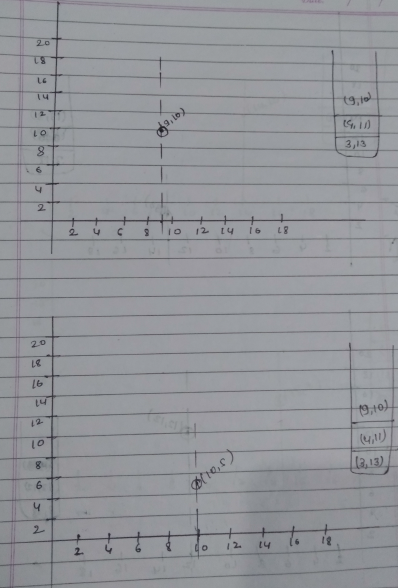 20
18
16
14
12
10
8
6
4
2
(9,10)
2 4 6 8 10 12 14 16 18
(9,10)
(4,11)
3,13
20
18
16
14
12
10
8
6
4
2
(10,5)
2 4 6 8 10 12 14 16 18
(9,10)
(4,11)
(3,13)